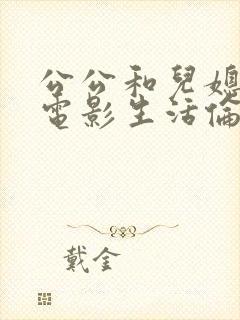 公公和兒媳
電影生活倫
戴金